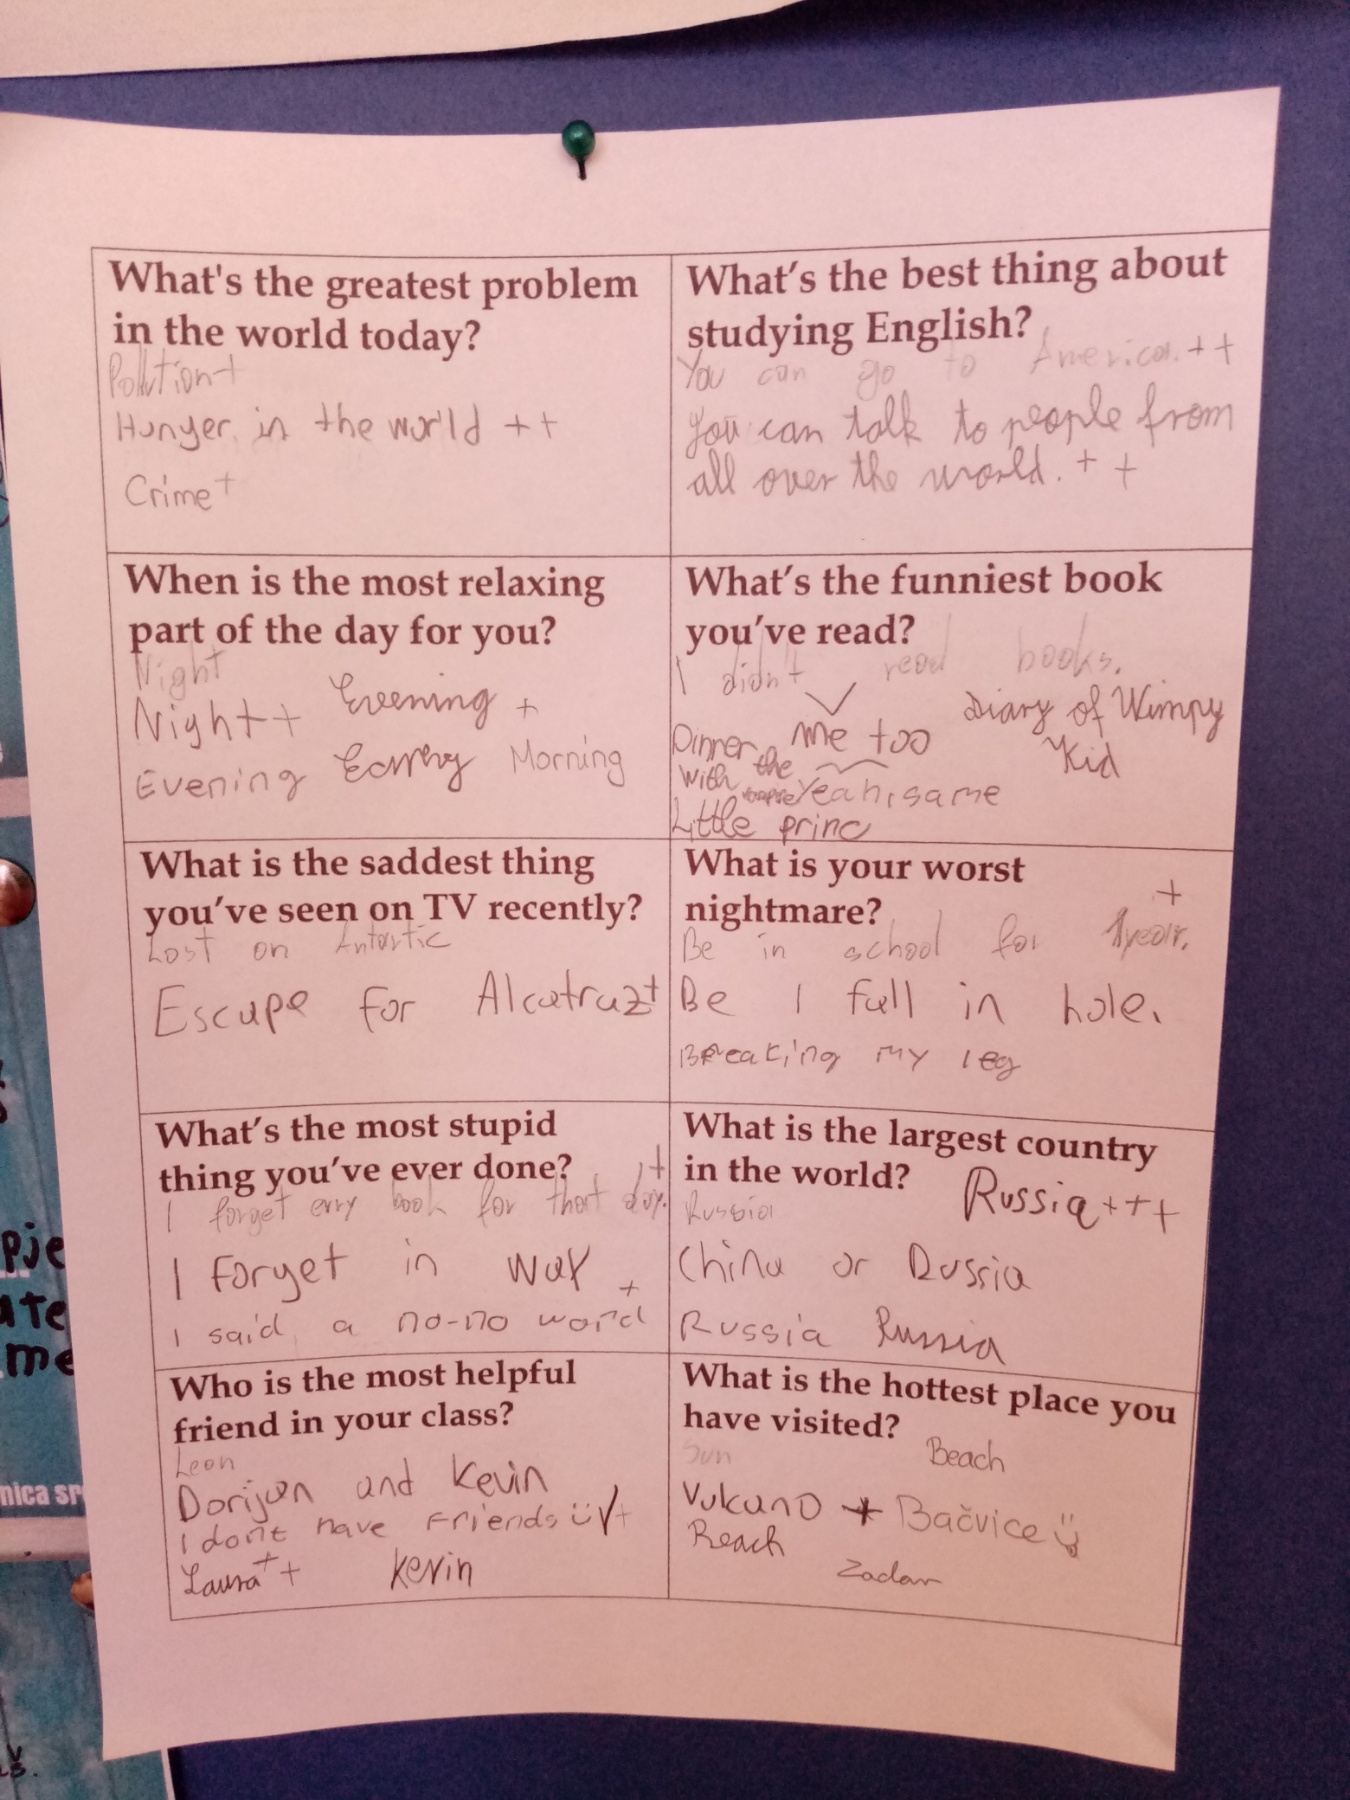 What's the greatest problem
in the world today?
Pollution+
Hunger in the world ++
Crime+
What's the best thing about
studying English?
You can go to America. ++
You can talk to people from
all over the world. + +
When is the most relaxing
part of the day for you?
Night
Night+ Evening +
Evening Morning
What's the funniest book
you've read?
I didn't read books.
me too Diary of Wimpy
Kid
Dinner
with the
Yeah, same
Little princ
What is the saddest thing
you've seen on TV recently?
Lost on Antartic
Escape for Alcatraz+
What is your worst
nightmare?
+
Be in school for 1 year.
Be I full in hole.
Breaking my leg
What's the most stupid
thing you've ever done?
I forget erry book for that day.+
I forget in way
I said a no-no word +
What is the largest country
in the world?
Russia Russia+++
China or Russia
Russia Russia
Who is the most helpful
friend in your class?
Leon
Dorijan and Kevin
I don't have friends
Laura++ Kevin
What is the hottest place you
have visited?
Sun Beach
Vukano + Bačvice
Beach
Zadar
pje
ate
me
nica sr